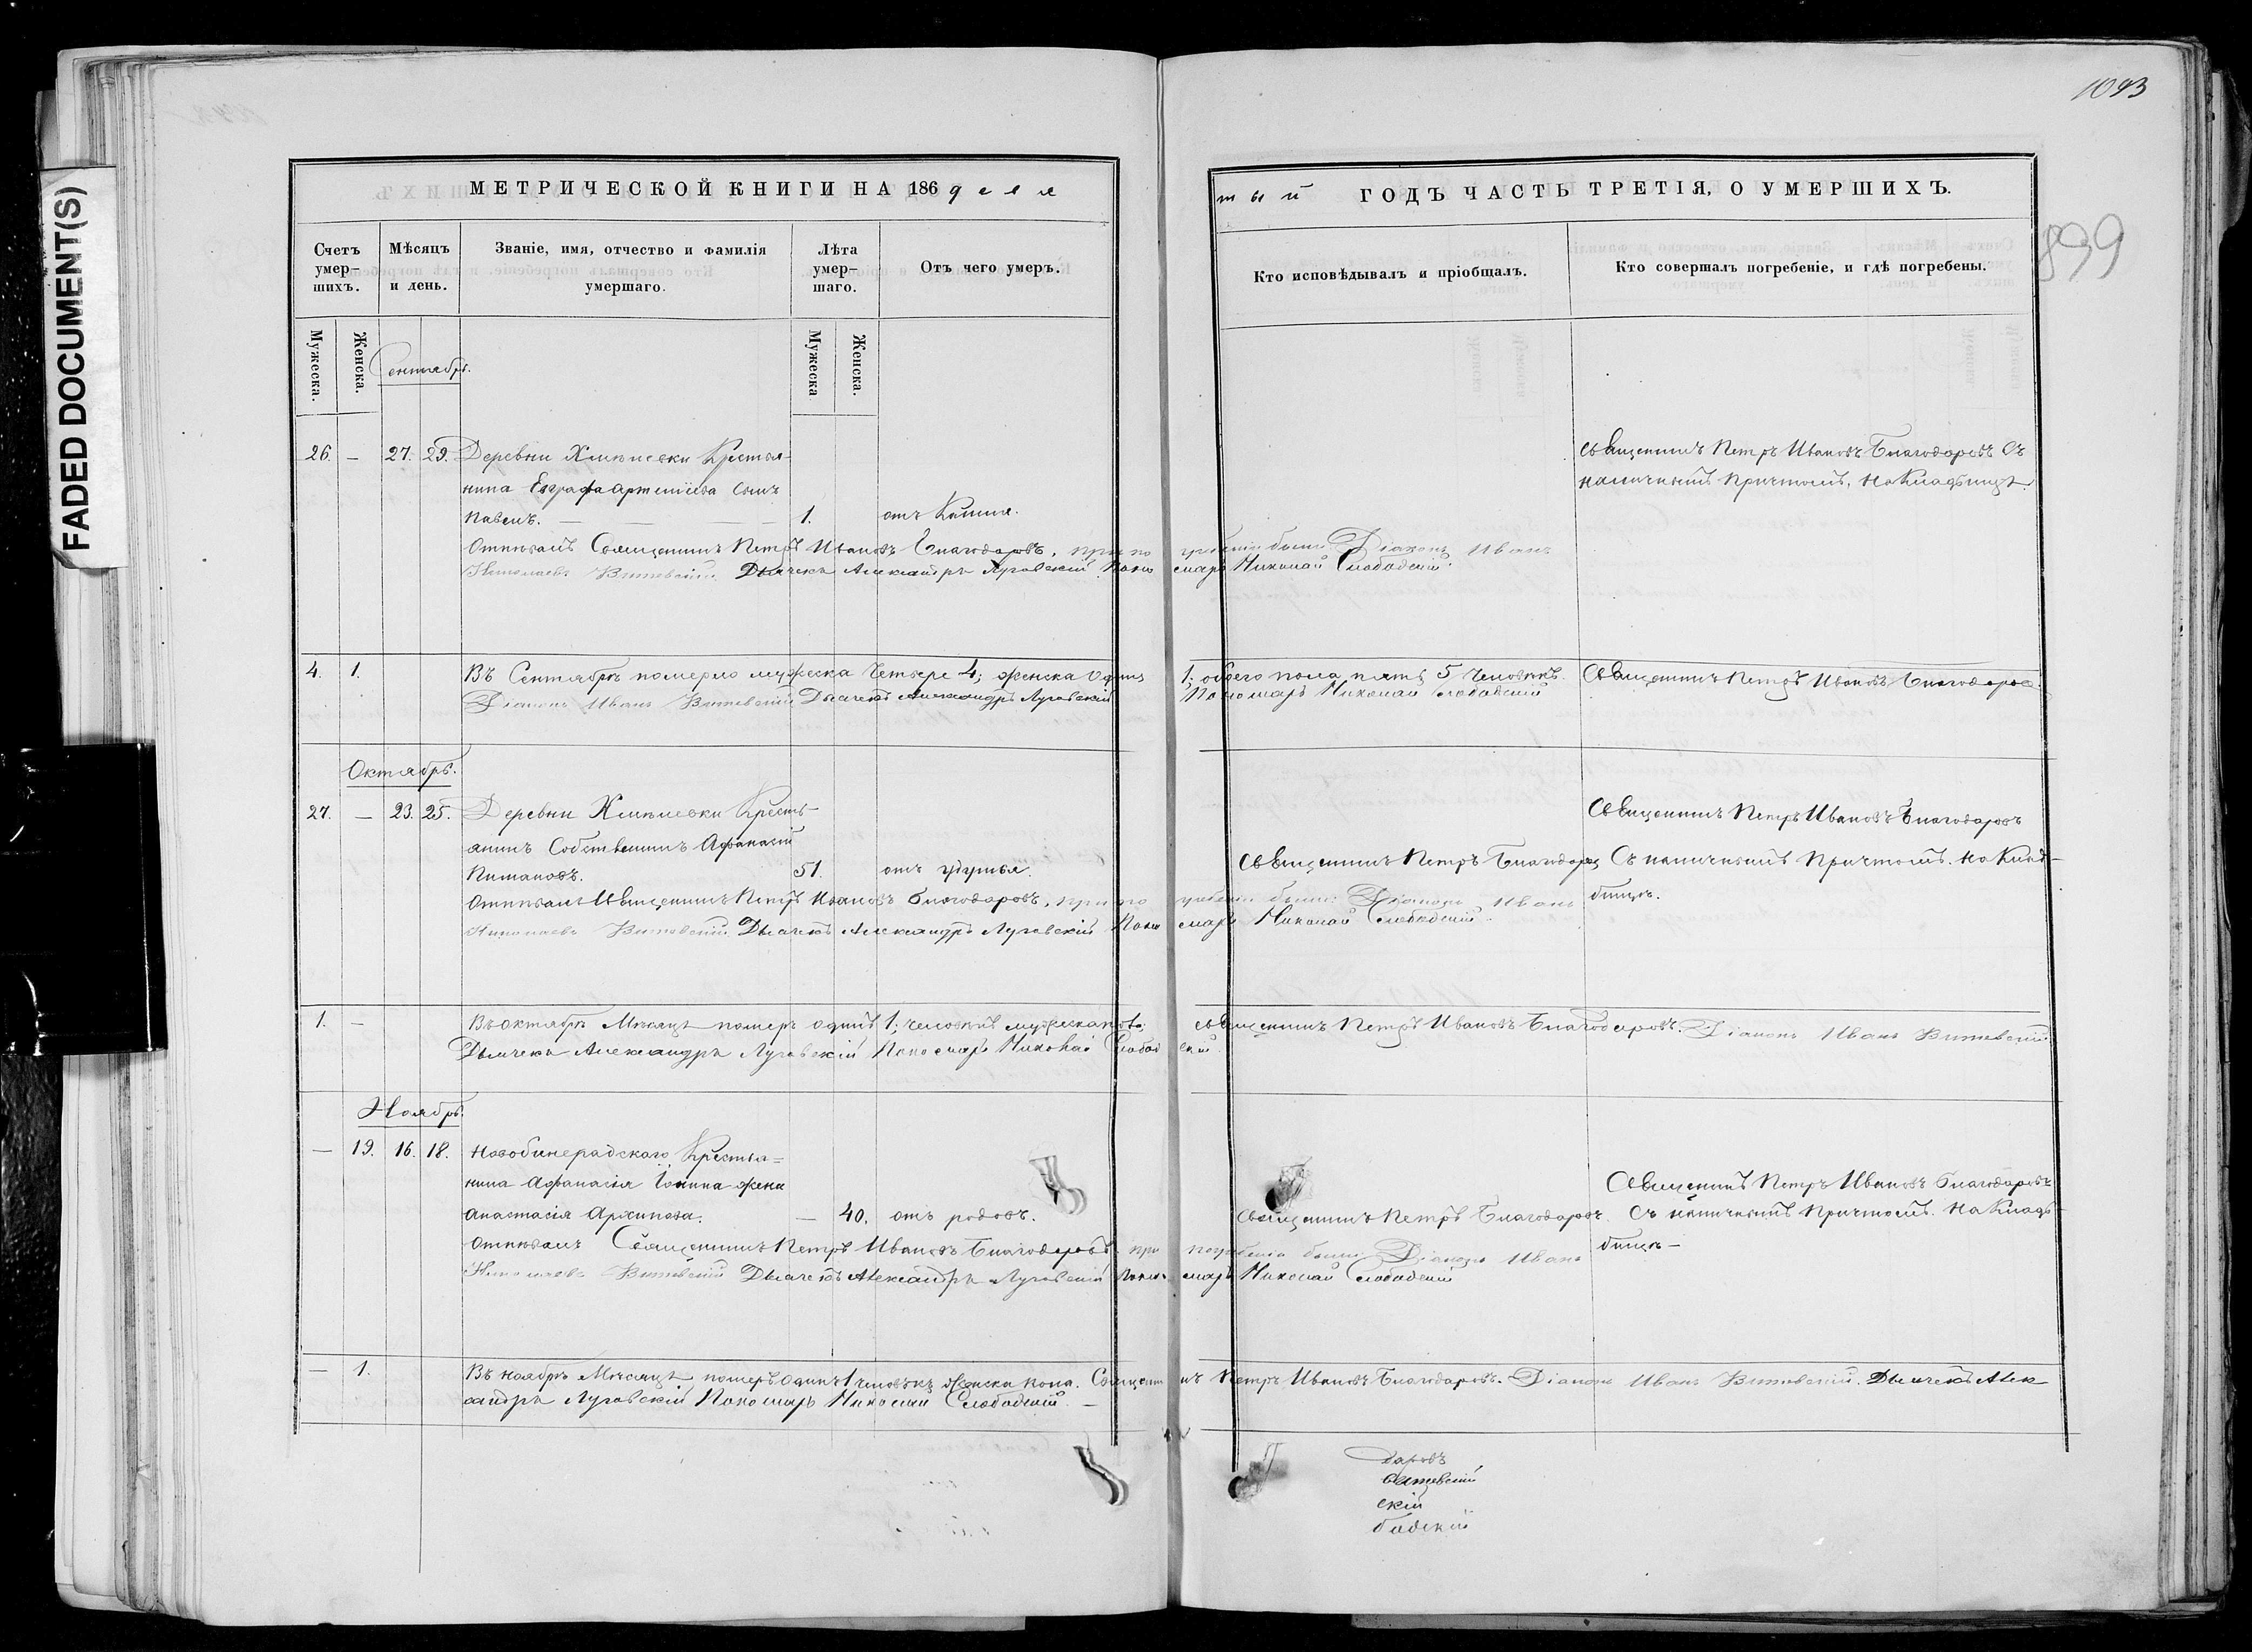 1093
899
FADED DOCUMENT(S)
МЕТРИЧЕСКОЙ КНИГИ НА 186 девя
тый ГОДЪ ЧАСТЬ ТРЕТІЯ, О УМЕРШИХЪ.
Счетъ умер-шихъ.
Мужеска.
Женска.
Мѣсяцъ и день.
Званіе, имя, отчество и фамилія умершаго.
Лѣта умер-шаго.
Мужеска
Женска.
Отъ чего умеръ.
Кто исповѣдывалъ и пріобщалъ.
Кто совершалъ погребеніе, и гдѣ погребены.
Сентябрь.
26. — 27. 29. Деревни Хмѣлевки Крестья-
нина Евграфа Артеміева сынъ
Павелъ. — 1. отъ Кашля.
Священникъ Петръ Ивановъ Благодаровъ Съ
наличнымъ причтомъ, на Кладбищѣ.
Отпѣвалъ Священникъ Петръ Ивановъ Благодаровъ, при погребеніи были: Діаконъ Иванъ
Николаевъ Витевскій. Дьячекъ Александръ Луговскій Пономарь Николай Слободскій.
4. 1. Въ Сентябрѣ померло мужеска четыре 4; женска одинъ 1; обоего пола пять 5 человѣкъ. Священникъ Петръ Ивановъ Благодаровъ.
Діаконъ Иванъ Витевскій Дьячекъ Александръ Луговскій Пономарь Николай Слободскій
Октябрь.
27. — 23. 25. Деревни Хмѣлевки Кресть-
янинъ Собственникъ Афанасій
51. отъ удушья.
Священникъ Петръ Благодаровъ
Священникъ Петръ Ивановъ Благодаровъ
Съ наличнымъ причтомъ. на Клад-
бищѣ.
Отпѣвалъ Священникъ Петръ Ивановъ Благодаровъ, при погребеніи были: Діаконъ Иванъ
Николаевъ Витевскій. Дьячекъ Александръ Луговскій Пономарь Николай Слободскій.
1. — Въ октябрѣ Мѣсяцѣ померъ одинъ 1; человѣкъ мужеска пола; Священникъ Петръ Ивановъ Благодаровъ. Діаконъ Иванъ Витевскій
Дьячекъ Александръ Луговскій Пономарь Николай Слободскій.
Ноябрь.
— 19. 16. 18. Крестья=
нина Афанасія Іонина жена
Анастасія Архипова. — 40. отъ родовъ.
Священникъ Петръ Благодаровъ
Священникъ Петръ Ивановъ Благодаровъ
Съ наличнымъ причтомъ. на Клад-
бищѣ —
Отпѣвалъ Священникъ Петръ Ивановъ Благодаровъ при погребеніи были Діаконъ Иванъ
Николаевъ Витевскій Дьячекъ Александръ Луговскій Пономарь Николай Слободскій
— 1. Въ ноябрѣ Мѣсяцѣ померъ одинъ 1 человѣкъ женска пола. Священникъ Петръ Ивановъ Благодаровъ. Діаконъ Иванъ Витевскій. Дьячекъ Алек
сандръ Луговскій Пономарь Николай Слободскій. —
даровъ
скій
бодскій